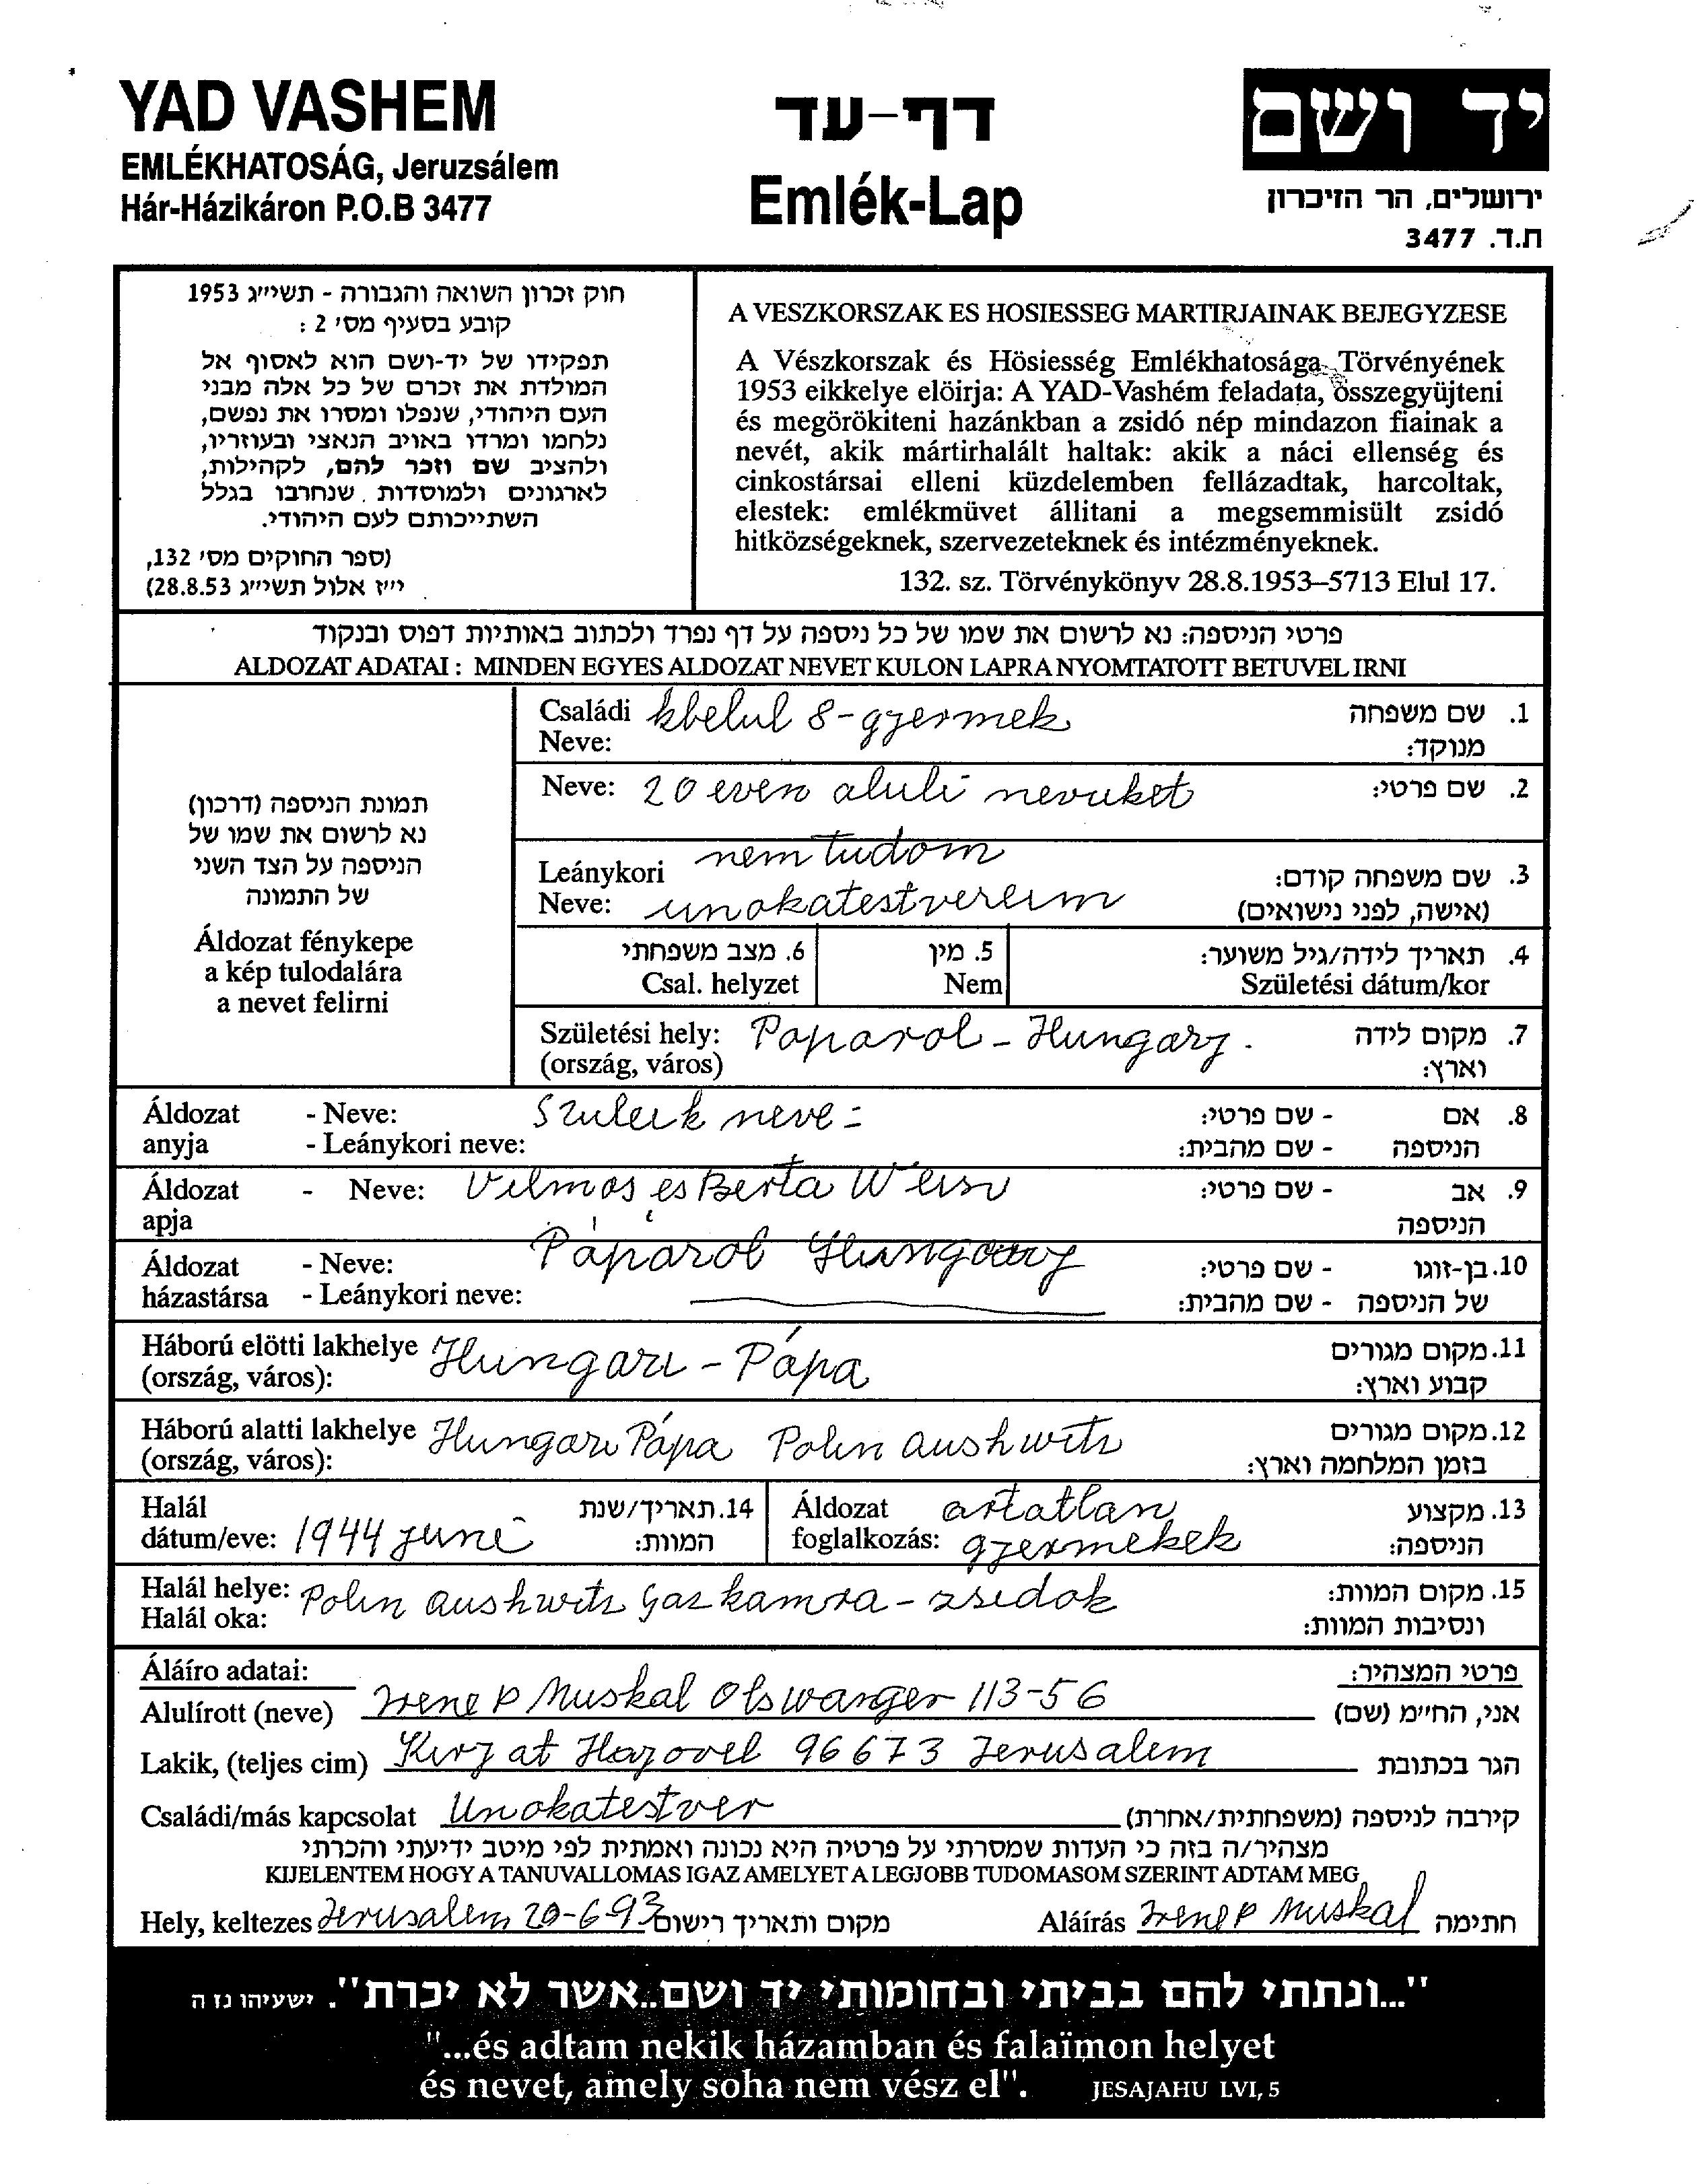 YAD VASHEM
EMLÉKHATOSÁG, Jeruzsálem
Hár-Házikáron P.O.B 3477
דף-עד
Emlék-Lap
יד ושם
ירושלים, הר הזיכרון
ת.ד. 3477
חוק זכרון השואה והגבורה - תשי״ג 1953
קובע בסעיף מס׳ 2 :
תפקידו של יד-ושם הוא לאסוף אל
המולדת את זכרם של כל אלה מבני
העם היהודי, שנפלו ומסרו את נפשם,
נלחמו ומרדו באויב הנאצי ובעוזריו,
ולהציב שם וזכר להם, לקהילות,
לארגונים ולמוסדות שנחרבו בגלל
השתייכותם לעם היהודי.
(ספר החוקים מס׳ 132,
י״ז אלול תשי״ג 28.8.53)
A VESZKORSZAK ES HOSIESSEG MARTIRJAINAK BEJEGYZESE
A Vészkorszak és Hösiesség Emlékhatosága Törvényének
1953 eikkelye elöirja: A YAD-Vashém feladata, összegyüjteni
és megörökiteni hazánkban a zsidó nép mindazon fiainak a
nevét, akik mártirhalált haltak: akik a náci ellenség és
cinkostársai elleni küzdelemben fellázadtak, harcoltak,
elestek: emlékmüvet állitani a megsemmisült zsidó
hitközségeknek, szervezeteknek és intézményeknek.
132. sz. Törvénykönyv 28.8.1953–5713 Elul 17.
פרטי הניספה: נא לרשום את שמו של כל ניספה על דף נפרד ולכתוב באותיות דפוס ובנקוד
ALDOZAT ADATAI : MINDEN EGYES ALDOZAT NEVET KULON LAPRA NYOMTATOTT BETUVEL IRNI
תמונת הניספה (דרכון)
נא לרשום את שמו של
הניספה על הצד השני
של התמונה
Áldozat fénykepe
a kép tulodalára
a nevet felirni
Családi kbelul 8-gyermek 1. שם משפחה
Neve: מנוקד:
Neve: 20 even aluli nevuket 2. שם פרטי:
nem tudom
Leánykori 3. שם משפחה קודם:
Neve: unokatestvereim (אישה, לפני נישואים)
6. מצב משפחתי 5. מין 4. תאריך לידה/גיל משוער:
Csal. helyzet Nem Születési dátum/kor
Születési hely: Paparol - Hungary. 7. מקום לידה
(ország, város) וארץ:
Áldozat - Neve: Szuleik neve - - שם פרטי: 8. אם
anyja - Leánykori neve: - שם מהבית: הניספה
Áldozat - Neve: Vilmos es Berta Weisz - שם פרטי: 9. אב
apja הניספה
Áldozat - Neve: Páparol Hungary - שם פרטי: 10. בן-זוגו
házastársa - Leánykori neve: - שם מהבית: של הניספה
Háború elötti lakhelye Hungari - Pápa 11. מקום מגורים
(ország, város): קבוע וארץ:
Háború alatti lakhelye Hungari Pápa Polin aushwitz 12. מקום מגורים
(ország, város): בזמן המלחמה וארץ:
Halál 14. תאריך/שנת Áldozat artatlan 13. מקצוע
dátum/eve: 1944 juni המוות: foglalkozás: gyermekek הניספה:
Halál helye: Polin aushwitz gaz kamra - zsidok 15. מקום המוות:
Halál oka: ונסיבות המוות:
Áláíro adatai: פרטי המצהיר:
Alulírott (neve) Irene P Muskal Olswanger 113-56 אני, החי״מ (שם)
Lakik, (teljes cim) Kiryat Hayovel 96673 Jerusalem הגר בכתובת
Családi/más kapcsolat Unokatestver קירבה לניספה (משפחתית/אחרת)
מצהיר/ה בזה כי העדות שמסרתי על פרטיה היא נכונה ואמתית לפי מיטב ידיעתי והכרתי
KIJELENTEM HOGY A TANUVALLOMAS IGAZ AMELYET A LEGJOBB TUDOMASOM SZERINT ADTAM MEG
Hely, keltezes Jerusalem 20-6-93 מקום ותאריך רישום Aláírás Irene P Muskal חתימה
"...ונתתי להם בביתי ובחומותי יד ושם..אשר לא יכרת". ישעיהו נז ה
"...és adtam nekik házamban és falaïmon helyet
és nevet, amely soha nem vész el". JESAJAHU LVI, 5